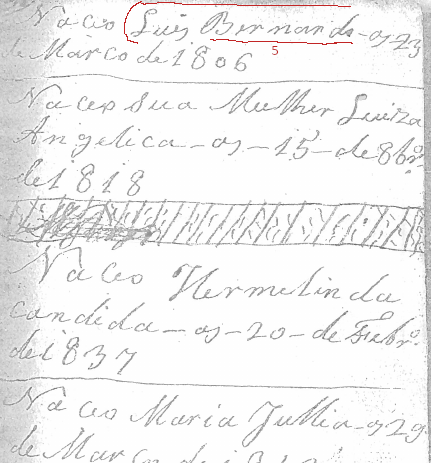 Naceo Luis Bernardo - as 23
5
de Março de 1806
Naceo sua Mulher Luiza
Angelica - as - 15 - de 8bro.
de 1818
Naceo Hermelinda
candida - as - 20 - de Febro.
de 1837
Naceo Maria Jullia - as 29
de Março de